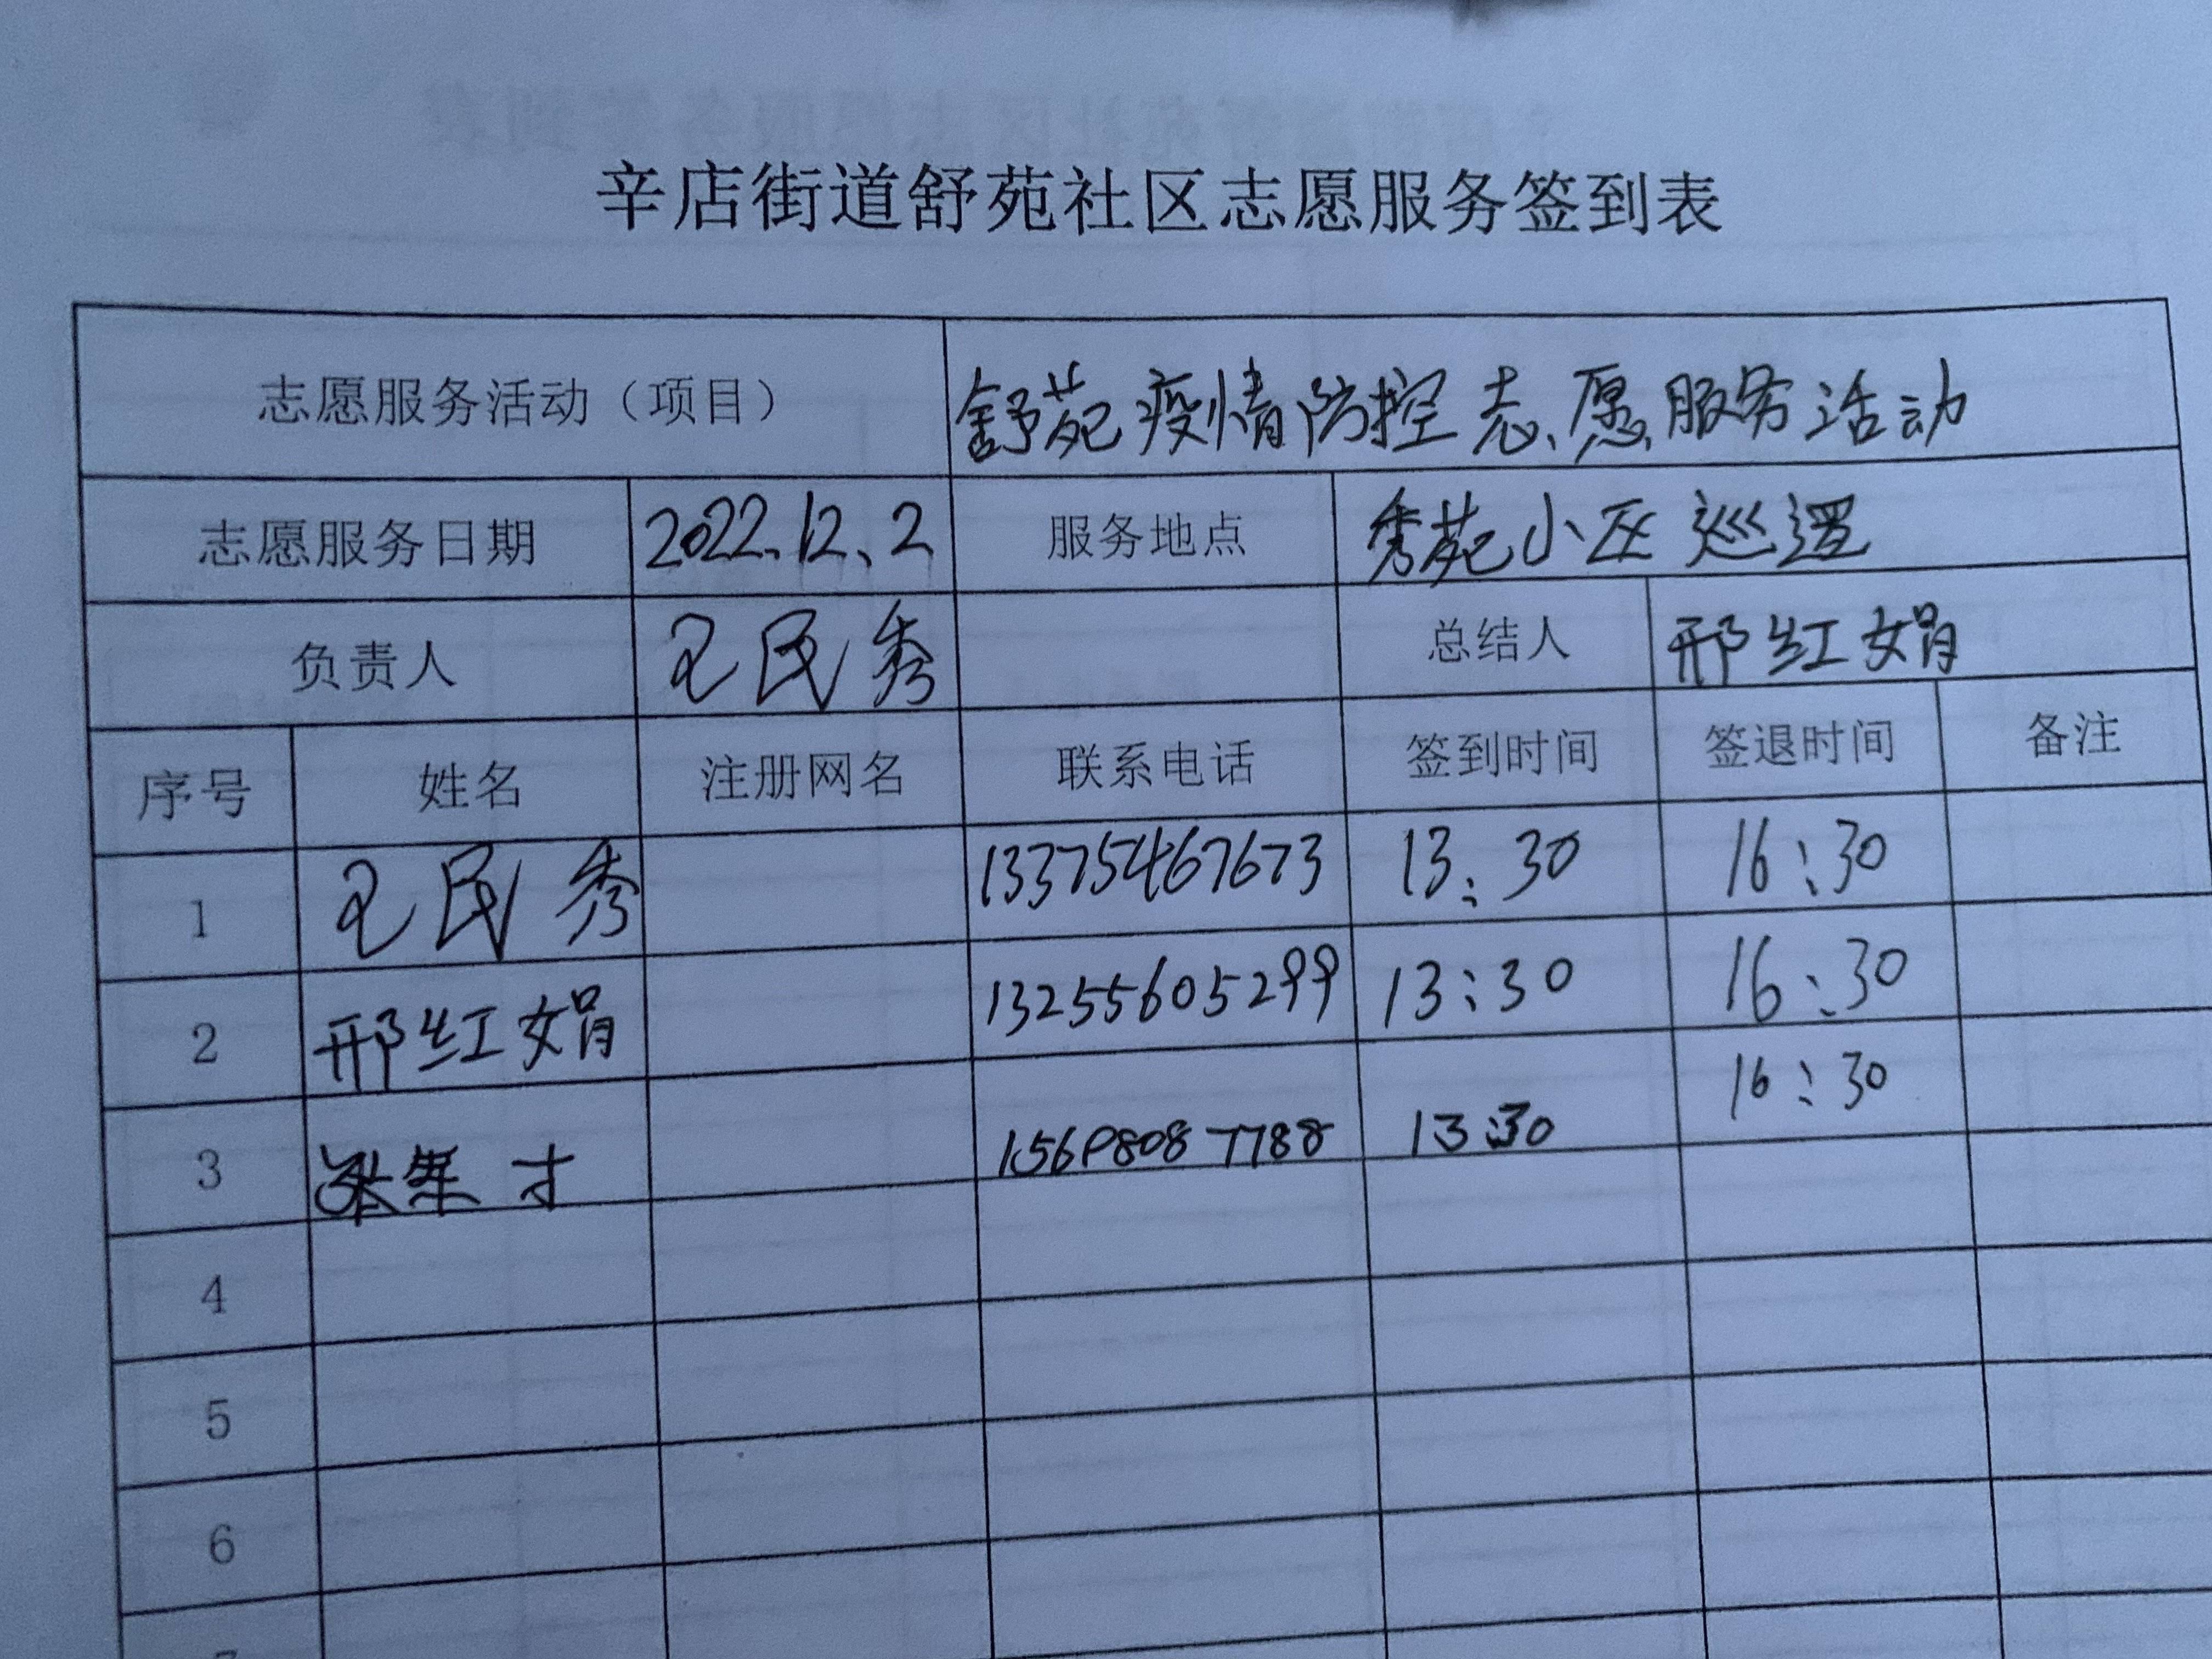 辛店街道舒苑社区志愿服务签到表
志愿服务活动（项目） 舒苑疫情防控志愿服务活动
志愿服务日期 2022.12.2 服务地点 秀苑小区巡逻
负责人 王民秀 总结人 邢红娟
序号 姓名 注册网名 联系电话 签到时间 签退时间 备注
1 王民秀 13375467673 13:30 16:30
2 邢红娟 13255605299 13:30 16:30
3 才 13:30 16:30
4
5
6